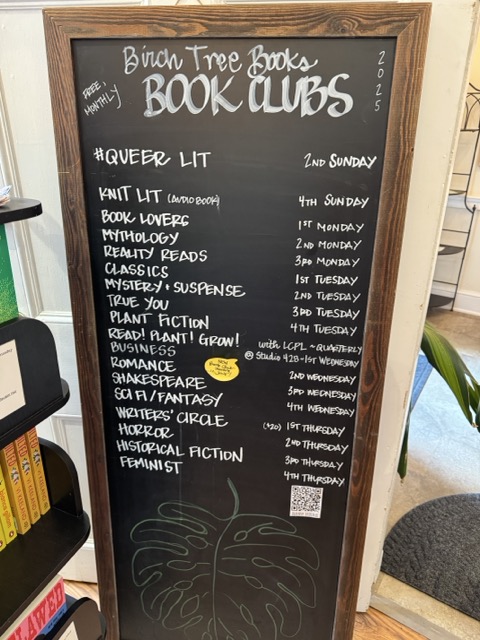 Birch Tree Books
FREE, MONTHLY
BOOK CLUBS
2025
#QUEER LIT 2ND SUNDAY
KNIT LIT (AUDIO BOOK) 4TH SUNDAY
BOOK LOVERS 1ST MONDAY
MYTHOLOGY 2ND MONDAY
REALITY READS 3RD MONDAY
CLASSICS 1ST TUESDAY
MYSTERY + SUSPENSE 2ND TUESDAY
TRUE YOU 3RD TUESDAY
PLANT FICTION 4TH TUESDAY
READ! PLANT! GROW! with LCPL ~ QUARTERLY
BUSINESS @ Studio 42B - 1ST WEDNESDAY
ROMANCE 2ND WEDNESDAY
SHAKESPEARE 3RD WEDNESDAY
SCI FI/FANTASY 4TH WEDNESDAY
WRITERS' CIRCLE ($20) 1ST THURSDAY
HORROR 2ND THURSDAY
HISTORICAL FICTION 3RD THURSDAY
FEMINIST 4TH THURSDAY